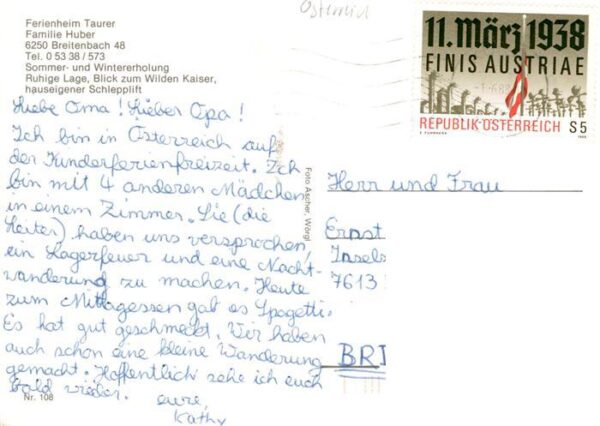 Österreich
Ferienheim Taurer
Familie Huber
6250 Breitenbach 48
Tel. 0 53 38 / 573
Sommer- und Wintererholung
Ruhige Lage, Blick zum Wilden Kaiser,
hauseigener Schlepplift
11. März 1938
FINIS AUSTRIAE
REPUBLIK·ÖSTERREICH S5
Liebe Oma! Lieber Opa!
Ich bin in Österreich auf
der Kinderferienfreizeit. Ich
bin mit 4 anderen Mädchen
in einem Zimmer. Sie (die
Leiter) haben uns versprochen,
ein Lagerfeuer und eine Nacht-
wanderung zu machen. Heute
zum Mittagessen gab es Spogetti.
Es hat gut geschmeckt. Wir haben
auch schon eine kleine Wanderung
gemacht. Hoffentlich sehe ich euch
bald wieder. eure
Kathy
Nr. 108
Foto Ascher, Wörgl
Herr und Frau
Ernst
Insels
7613
BRD